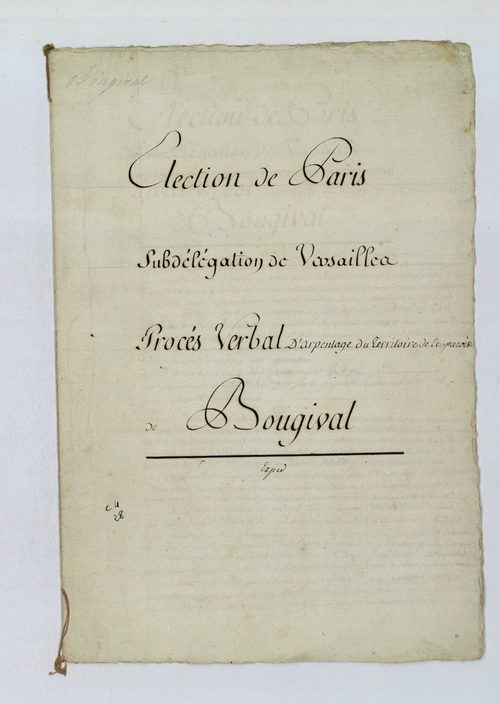 Bougival
Election de Paris
Subdélégation de Versailles
Procés Verbal D'arpentage du territoire de la paroisse
de Bougival
Expé
C 4
28